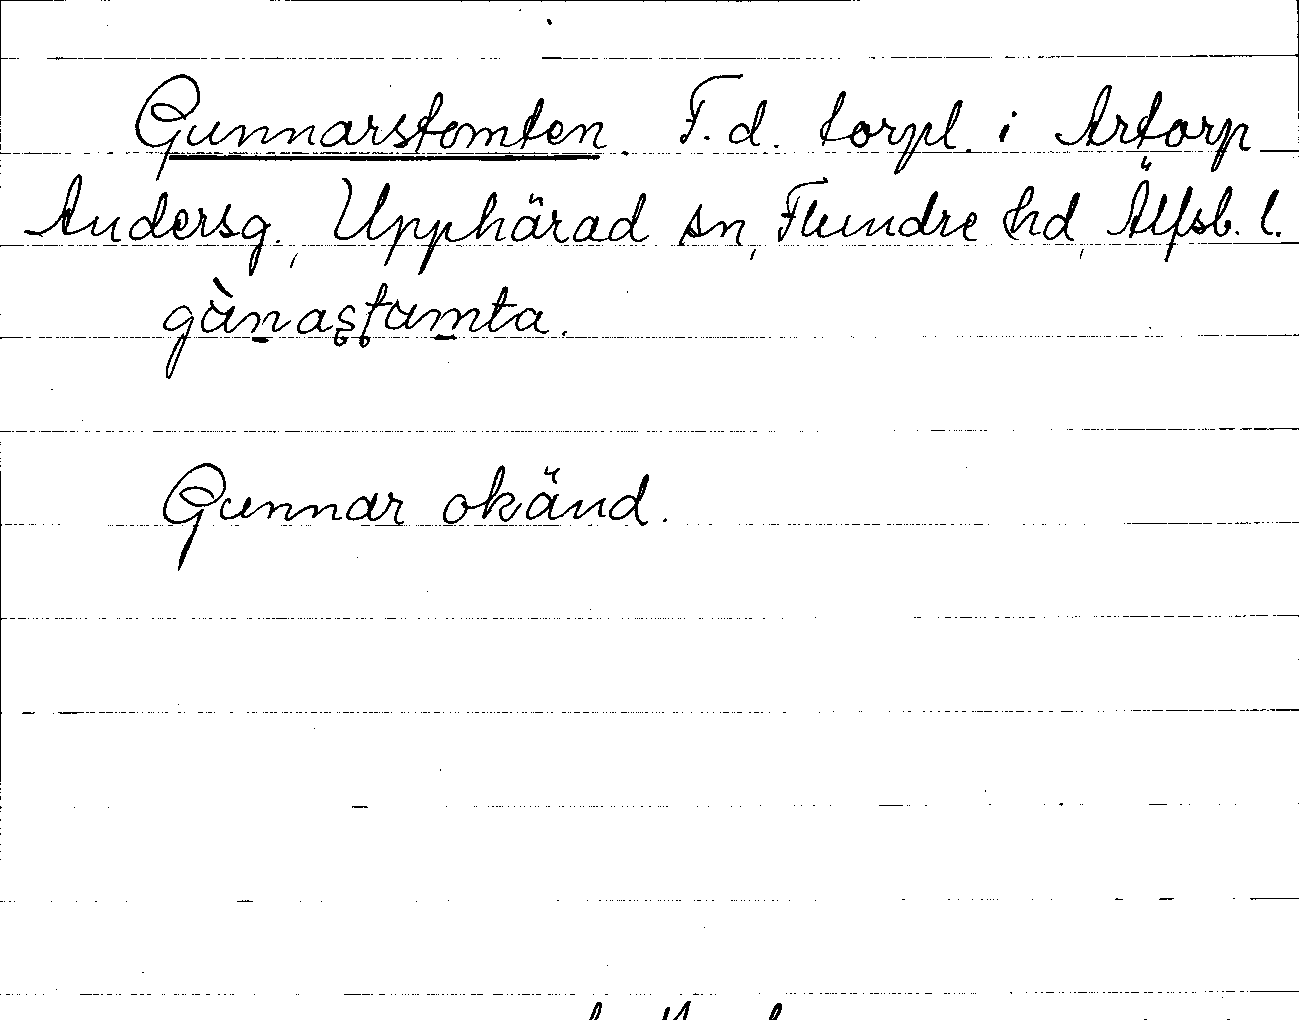 Gunnarstomten. F.d. torpl. i Artorp
Andersg., Upphärad sn, Flundre hd, Älfsb. l.
gùnastamta.
Gunnar okänd.